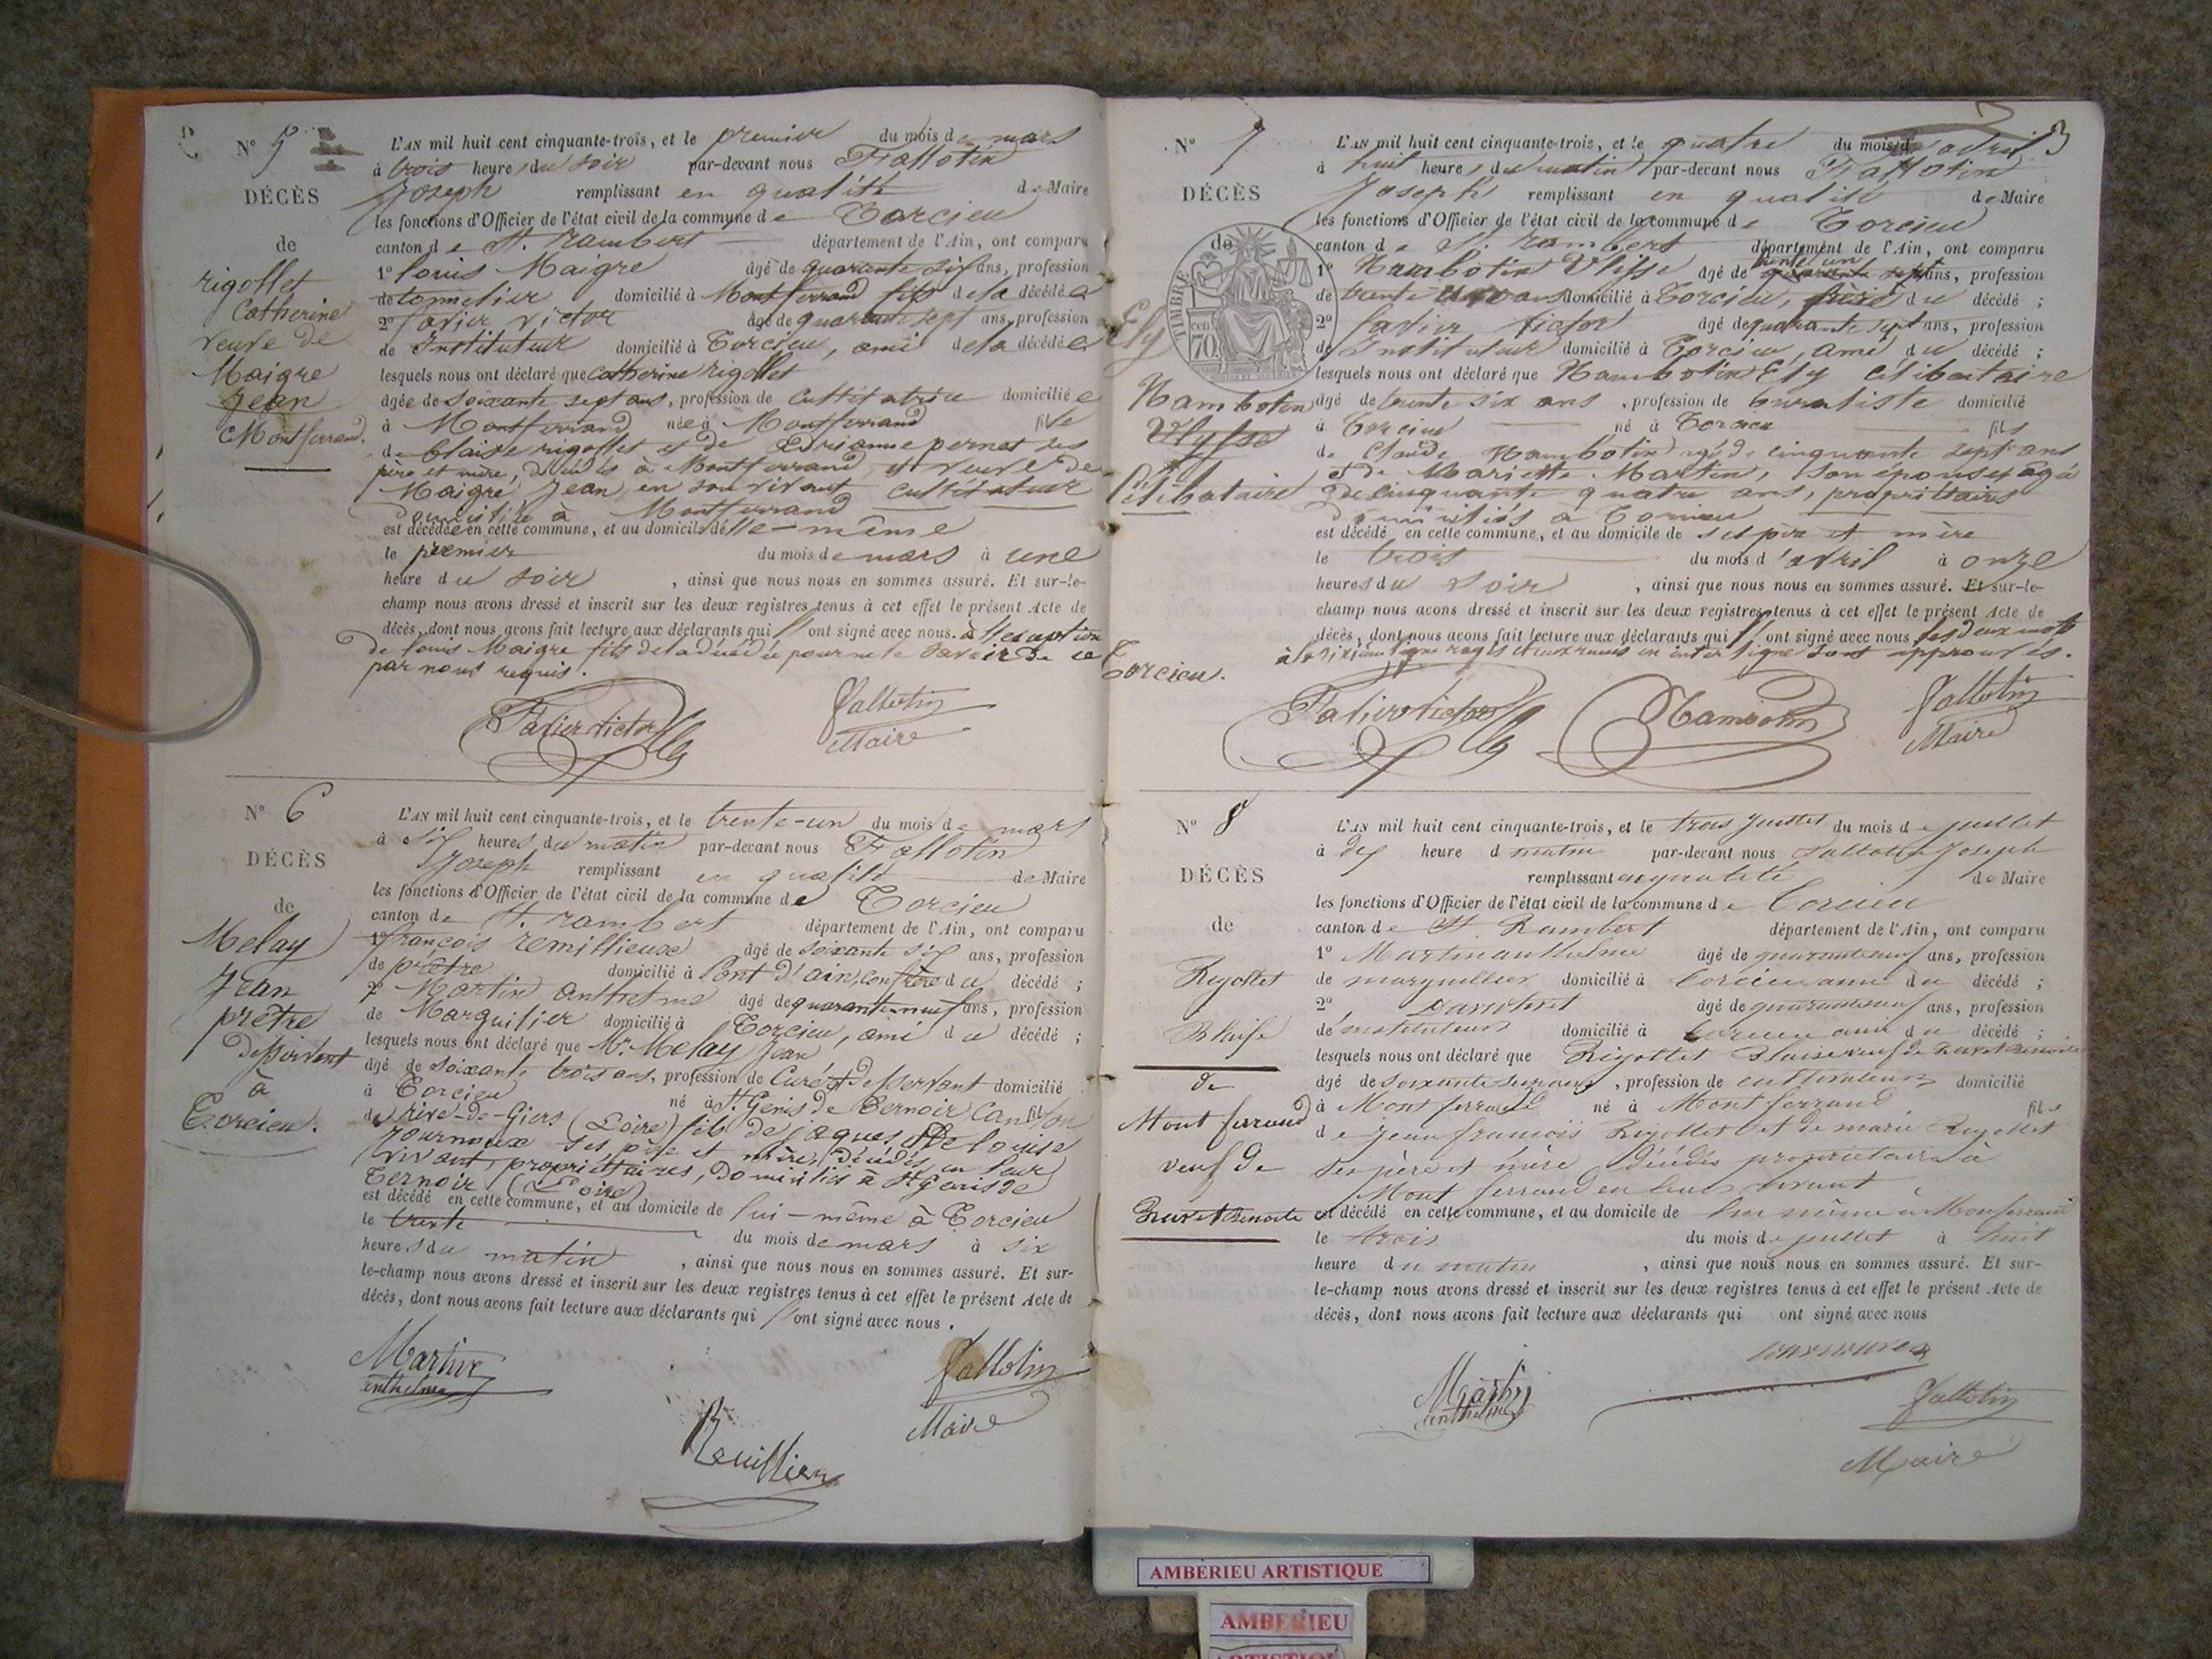 N° 5
DÉCÈS
de
rigollet
Catherine
veuve de
Maigre
Jean
Montferrand.
L'AN mil huit cent cinquante-trois, et le premier du mois de mars
à trois heures du soir par-devant nous Fallotin
Joseph remplissant en qualité de Maire
les fonctions d'Officier de l'état civil de la commune de Torcieu
canton de St. rambert département de l'Ain, ont comparu
1° louis Maigre âgé de quarante six ans, profession
de tonnelier domicilié à Montferrand fils de la décédée
2° favier victor âgé de quarante sept ans, profession
de Instituteur domicilié à Torcieu, ami de la décédée
lesquels nous ont déclaré que Catherine rigollet
âgée de soixante sept ans, profession de Cultivatrice domiciliée
à Montferrand née à Montferrand fille
de blaise rigollet et de pernet ses
père et mère, décédés à Montferrand et veuve de
Maigre Jean en son vivant cultivateur
domicilié à Montferrand
est décédée en cette commune, et au domicile d'elle-même
le premier du mois de mars à une
heure du soir , ainsi que nous nous en sommes assuré. Et sur-le-
champ nous avons dressé et inscrit sur les deux registres tenus à cet effet le présent Acte de
décès, dont nous avons fait lecture aux déclarants qui ont signé avec nous. à l'exception
de louis Maigre fils de la décédée pour ne le savoir de ce
par nous requis.
Favier Victor
Fallotin
Maire
N° 6
DÉCÈS
de
Melay
Jean
prêtre
desservant
à
Torcieu.
L'AN mil huit cent cinquante-trois, et le trente-un du mois de mars
à six heures du matin par-devant nous Fallotin
Joseph remplissant en qualité de Maire
les fonctions d'Officier de l'état civil de la commune de Torcieu
canton de St. rambert département de l'Ain, ont comparu
1° françois remillieux âgé de soixante six ans, profession
de prêtre domicilié à Pont d'ain, confrère du décédé ;
2° Martin anthelme âgé de quarante-neuf ans, profession
de Marguilier domicilié à Torcieu, ami du décédé ;
lesquels nous ont déclaré que Mr. Melay Jean
âgé de soixante trois ans, profession de Curé desservant domicilié
à Torcieu né à St. Genis de Ternoir Canton
de rive-de-Giers (Loire) fils de jaques et de louise
Journoux ses père et mère, décédés, en leur
vivant, propriettaires, domiciliés à St genis de
Ternoir (Loire)
est décédé en cette commune, et au domicile de lui-même à Torcieu
le trente du mois de mars à six
heures du matin , ainsi que nous nous en sommes assuré. Et sur-
le-champ nous avons dressé et inscrit sur les deux registres tenus à cet effet le présent Acte de
décès, dont nous avons fait lecture aux déclarants qui ont signé avec nous.
Martin
anthelme
Fallotin
Maire
N° 7
DÉCÈS
de
TIMBRE
70
Ely
Nambotin
Ulysse
Célibataire
Torcieu.
3
L'AN mil huit cent cinquante-trois, et le quatre du mois d'avril
à huit heures du matin par-devant nous Fallotin
Joseph remplissant en qualité de Maire
les fonctions d'Officier de l'état civil de la commune de Torcieu
canton de St. rambert département de l'Ain, ont comparu
trente un
1° Nambotin Ulisse âgé de quarante sept ans, profession
de domicilié à Torcieu, frère du décédé ;
2° favier victor âgé de quarante sept ans, profession
d'Instituteur domicilié à Torcieu, ami du décédé ;
lesquels nous ont déclaré que Nambotin Ely Célibataire
âgé de trente six ans , profession de buraliste domicilié
à Torcieu né à Torcieu fils
de Claude Nambotin agé de cinquante sept ans
et de Mariette Martin, son épouse, agée
de cinquante quatre ans, propriétaires
domiciliés à Torcieu
est décédé en cette commune, et au domicile de ses père et mère
le trois du mois d'avril à onze
heures du soir , ainsi que nous nous en sommes assuré. Et sur-le-
champ nous avons dressé et inscrit sur les deux registres tenus à cet effet le présent Acte de
décès, dont nous avons fait lecture aux déclarants qui ont signé avec nous les deux mots
à la sixième ligne rayés et en interligne sont approuvés.
Favier victor
Nambotin
Fallotin
Maire
N° 8
DÉCÈS
de
Rigollet
Blaise
de
Montferrand
veuf de
L'AN mil huit cent cinquante-trois, et le trois Juillet du mois de juillet
à dix heure d matin par-devant nous Fallotin Joseph
remplissant en qualité de Maire
les fonctions d'Officier de l'état civil de la commune de Torcieu
canton de St Rambert département de l'Ain, ont comparu
1° Martin anthelme âgé de quarante neuf ans, profession
de marguillier domicilié à Torcieu ami du décédé ;
2° âgé de ans, profession
de instituteur domicilié à Torcieu ami du décédé ;
lesquels nous ont déclaré que Rigollet Blaise veuf de
âgé de soixante , profession de cultivateur domicilié
à Montferrand né à Montferrand fils
de Jean françois Rigollet et de marie Rigollet
ses père et mère décédés propriétaires à
Montferrand en leur vivant
est décédé en cette commune, et au domicile de lui même à Montferrand
le trois du mois de juillet à huit
heure du matin , ainsi que nous nous en sommes assuré. Et sur-
le-champ nous avons dressé et inscrit sur les deux registres tenus à cet effet le présent Acte de
décès, dont nous avons fait lecture aux déclarants qui ont signé avec nous
Martin
anthelme
Fallotin
Maire
AMBERIEU ARTISTIQUE
AMBERIEU
ARTISTIQUE